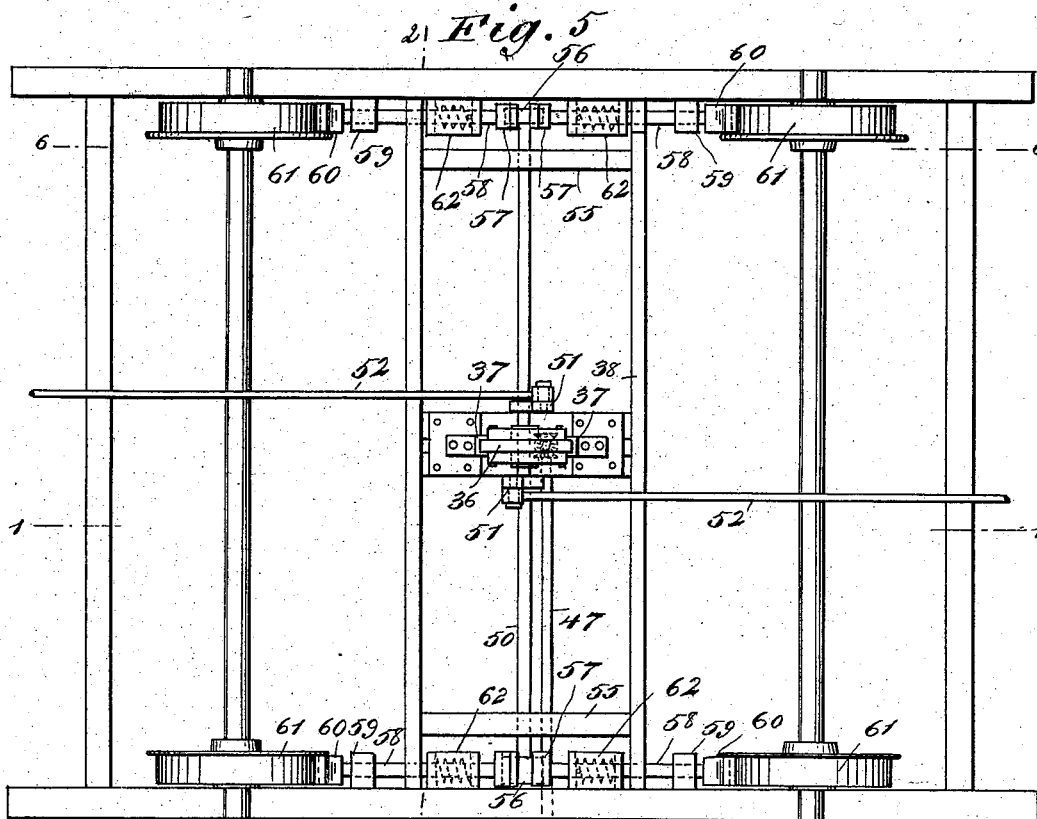 2 Fig. 5
56 60
6 61 60 59 62 58 57 57 62 55 58 59 61 6
52 37 51 38 37
36
1 51 52
50 47
57
61 60 59 58 62 55 62 58 59 60 61
56